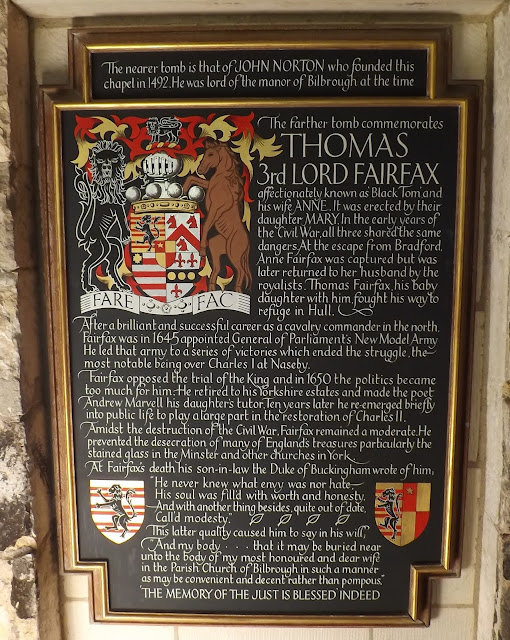 The nearer tomb is that of JOHN NORTON who founded this
chapel in 1492. He was lord of the manor of Bilbrough at the time
The farther tomb commemorates
THOMAS
3rd LORD FAIRFAX
affectionately known as Black Tom and
his wife ANNE. It was erected by their
daughter MARY. In the early years of
the Civil War, all three shared the same
dangers. At the escape from Bradford,
Anne Fairfax was captured but was
later returned to her husband by the
royalists. Thomas Fairfax, his baby
daughter with him, fought his way to
refuge in Hull.
FARE FAC
After a brilliant and successful career as a cavalry commander in the north,
Fairfax was in 1645 appointed General of Parliament's New Model Army
He led that army to a series of victories which ended the struggle, the
most notable being over Charles I at Naseby.
Fairfax opposed the trial of the King and in 1650 the politics became
too much for him. He retired to his Yorkshire estates and made the poet
Andrew Marvell his daughter's tutor. Ten years later he re-emerged briefly
into public life to play a large part in the restoration of Charles II.
Amidst the destruction of the Civil War, Fairfax remained a moderate. He
prevented the desecration of many of England's treasures particularly the
stained glass in the Minster and other churches in York.
At Fairfax's death his son-in-law the Duke of Buckingham wrote of him,
"He never knew what envy was nor hate
His soul was fill'd with worth and honesty,
And with another thing besides, quite out of date,
Call'd modesty."
This latter quality caused him to say in his will,
"And my body . . . that it may be buried near
unto the body of my most honoured and dear wife
in the Parish Church of Bilbrough in such a manner
as may be convenient and decent rather than pompous."
THE MEMORY OF THE JUST IS BLESSED INDEED